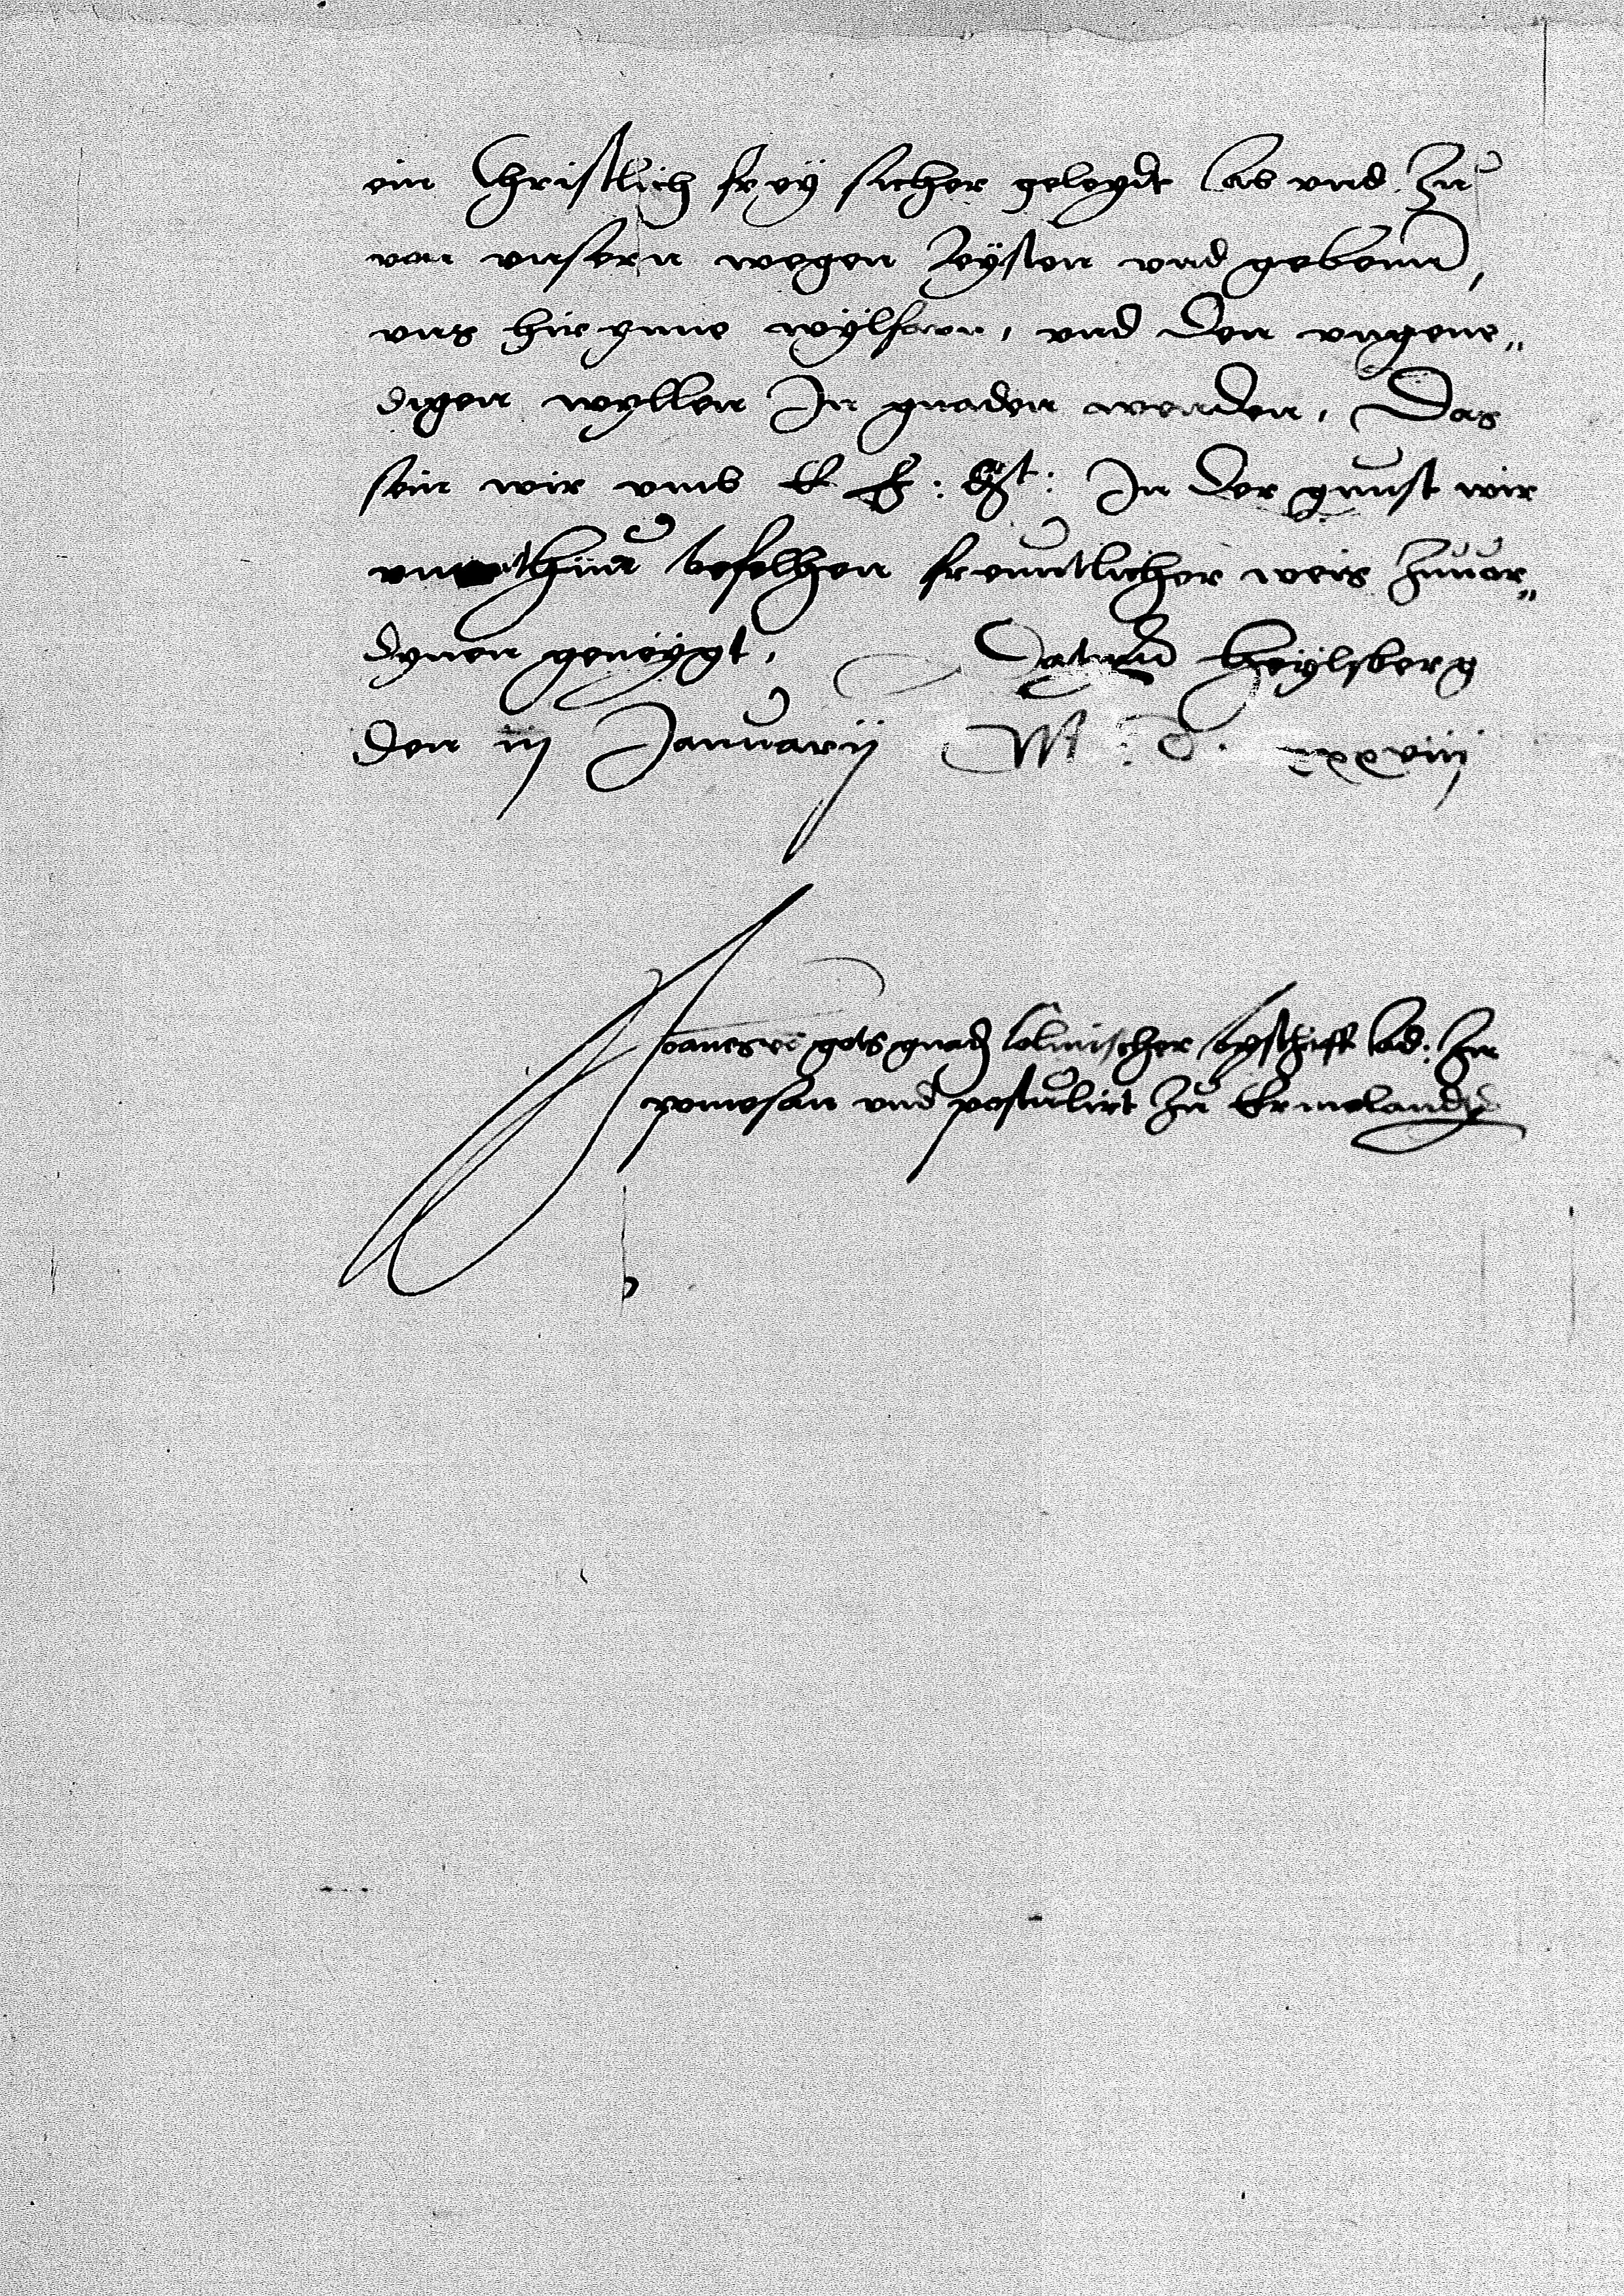 ein Christlich frey sicher geleydt ab vnd zu
von vnsern wegen leysten vnd gebenn,
vns hir ynne wylfaren, vnd den vngene„
digen wyllen In gnaden wenden, Das
sein wir vmb E F: Gt: In der gunst wir
befelhen freuntlicher weis zuuor„
dynen geneÿgt, Datum Heÿlsberg
den iij Januarij M: D. xxxviii
Joannes vo gots gnad Colmischer byschoff ad: zu
pomesan vnd postulirt zu Ermelandt